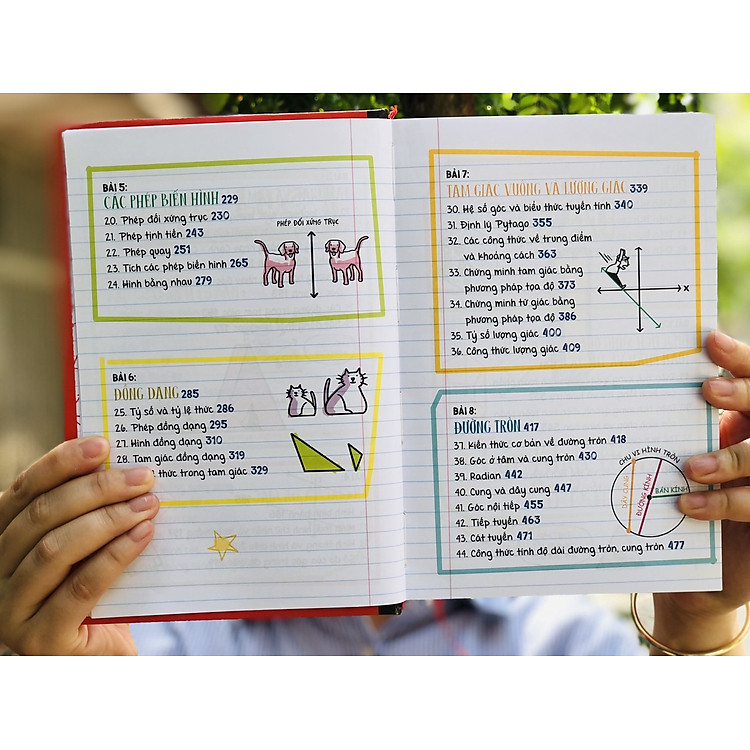 BÀI 5:
CÁC PHÉP BIẾN HÌNH 229
20. Phép đối xứng trục 230
21. Phép tịnh tiến 243
22. Phép quay 251
23. Tích các phép biến hình 265
24. Hình bằng nhau 279
PHÉP ĐỐI XỨNG TRỤC
BÀI 6:
ĐỒNG DẠNG 285
25. Tỷ số và tỷ lệ thức 286
26. Phép đồng dạng 295
27. Hình đồng dạng 310
28. Tam giác đồng dạng 319
thức trong tam giác 329
BÀI 7:
TAM GIÁC VUÔNG VÀ LƯỢNG GIÁC 339
30. Hệ số góc và biểu thức tuyến tính 340
31. Định lý Pytago 355
32. Các công thức về trung điểm
và khoảng cách 363
33. Chứng minh tam giác bằng
phương pháp tọa độ 373
34. Chứng minh tứ giác bằng
phương pháp tọa độ 386
35. Tỷ số lượng giác 400
36. Công thức lượng giác 409
x
BÀI 8:
ĐƯỜNG TRÒN 417
37. Kiến thức cơ bản về đường tròn 418
38. Góc ở tâm và cung tròn 430
39. Radian 442
40. Cung và dây cung 447
41. Góc nội tiếp 455
42. Tiếp tuyến 463
43. Cát tuyến 471
44. Công thức tính độ dài đường tròn, cung tròn 477
CHU VI HÌNH TRÒN
DÂY CUNG
ĐƯỜNG KÍNH
BÁN KÍNH